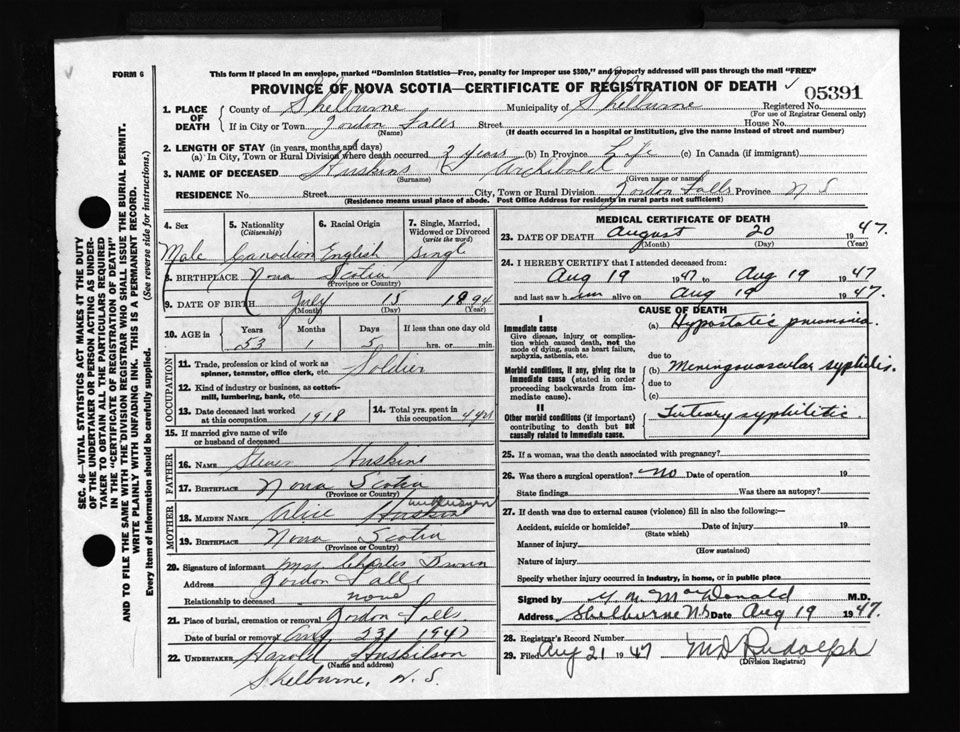 FORM 6
This form if placed in an envelope, marked "Dominion Statistics—Free, penalty for improper use $300," and properly addressed will pass through the mail "FREE"
PROVINCE OF NOVA SCOTIA—CERTIFICATE OF REGISTRATION OF DEATH
05391
1. PLACE OF DEATH County of Shelburne Municipality of Shelburne Registered No.
(For use of Registrar General only)
If in City or Town Jordon Falls Street House No.
(Name) (If death occurred in a hospital or institution, give the name instead of street and number)
2. LENGTH OF STAY (in years, months and days)
(a) In City, Town or Rural Division where death occurred 2 years (b) In Province Life (c) In Canada (if immigrant)
3. NAME OF DECEASED Huskins Archibald
(Surname) (Given name or names)
RESIDENCE No. Street City, Town or Rural Division Jordon Falls Province N S
(Residence means usual place of abode. Post Office Address for residents in rural parts not sufficient)
4. Sex Male
5. Nationality (Citizenship) Canadian
6. Racial Origin English
7. Single, Married, Widowed or Divorced (write the word) Single
8. BIRTHPLACE Nova Scotia
(Province or Country)
9. DATE OF BIRTH July 15 1894
(Month) (Day) (Year)
10. AGE in Years Months Days If less than one day old
53 1 5 hrs. or min.
OCCUPATION
11. Trade, profession or kind of work as spinner, teamster, office clerk, etc. Soldier
12. Kind of industry or business, as cotton-mill, lumbering, bank, etc.
13. Date deceased last worked at this occupation 1918
14. Total yrs. spent in this occupation 4 yrs
15. If married give name of wife or husband of deceased
FATHER
16. NAME Huskins
17. BIRTHPLACE Nova Scotia
(Province or Country)
MOTHER
18. MAIDEN NAME Alice Huskins
19. BIRTHPLACE Nova Scotia
(Province or Country)
20. Signature of informant Mrs. Charles
Address Jordon Falls
Relationship to deceased none
21. Place of burial, cremation or removal Jordon Falls
Date of burial or removal Aug 23 1947
22. UNDERTAKER Harold Huskilson
(Name and address)
Shelburne, N. S.
MEDICAL CERTIFICATE OF DEATH
23. DATE OF DEATH August 20 1947.
(Month) (Day) (Year)
24. I HEREBY CERTIFY that I attended deceased from:
Aug 19 1947 to Aug 19 1947
and last saw him alive on Aug 19 1947.
CAUSE OF DEATH
I
Immediate cause
Give disease, injury or complication which caused death, not the mode of dying, such as heart failure, asphyxia, asthenia, etc.
(a) Hypostatic pneumonia.
due to
Morbid conditions, if any, giving rise to immediate cause (stated in order proceeding backwards from immediate cause).
(b) Meningovascular syphilis.
due to
(c)
II
Other morbid conditions (if important) contributing to death but not causally related to immediate cause.
Tertiary syphilitic.
25. If a woman, was the death associated with pregnancy?
26. Was there a surgical operation? No Date of operation 19
State findings Was there an autopsy?
27. If death was due to external causes (violence) fill in also the following:—
Accident, suicide or homicide? Date of injury 19
(State which)
Manner of injury
(How sustained)
Nature of injury
Specify whether injury occurred in industry, in home, or in public place
Signed by MacDonald M.D.
Address Shelburne N.S Date Aug 19 1947.
28. Registrar's Record Number
29. Filed Aug 21 1947 M D Rudolph
(Division Registrar)
SEC. 46—VITAL STATISTICS ACT MAKES IT THE DUTY
OF THE UNDERTAKER OR PERSON ACTING AS UNDERTAKER
TO OBTAIN ALL THE PARTICULARS REQUIRED
IN THE "CERTIFICATE OF REGISTRATION OF DEATH"
AND TO FILE THE SAME WITH THE DIVISION REGISTRAR WHO SHALL ISSUE THE BURIAL PERMIT.
WRITE PLAINLY WITH UNFADING INK. THIS IS A PERMANENT RECORD.
Every item of Information should be carefully supplied. (See reverse side for instructions.)